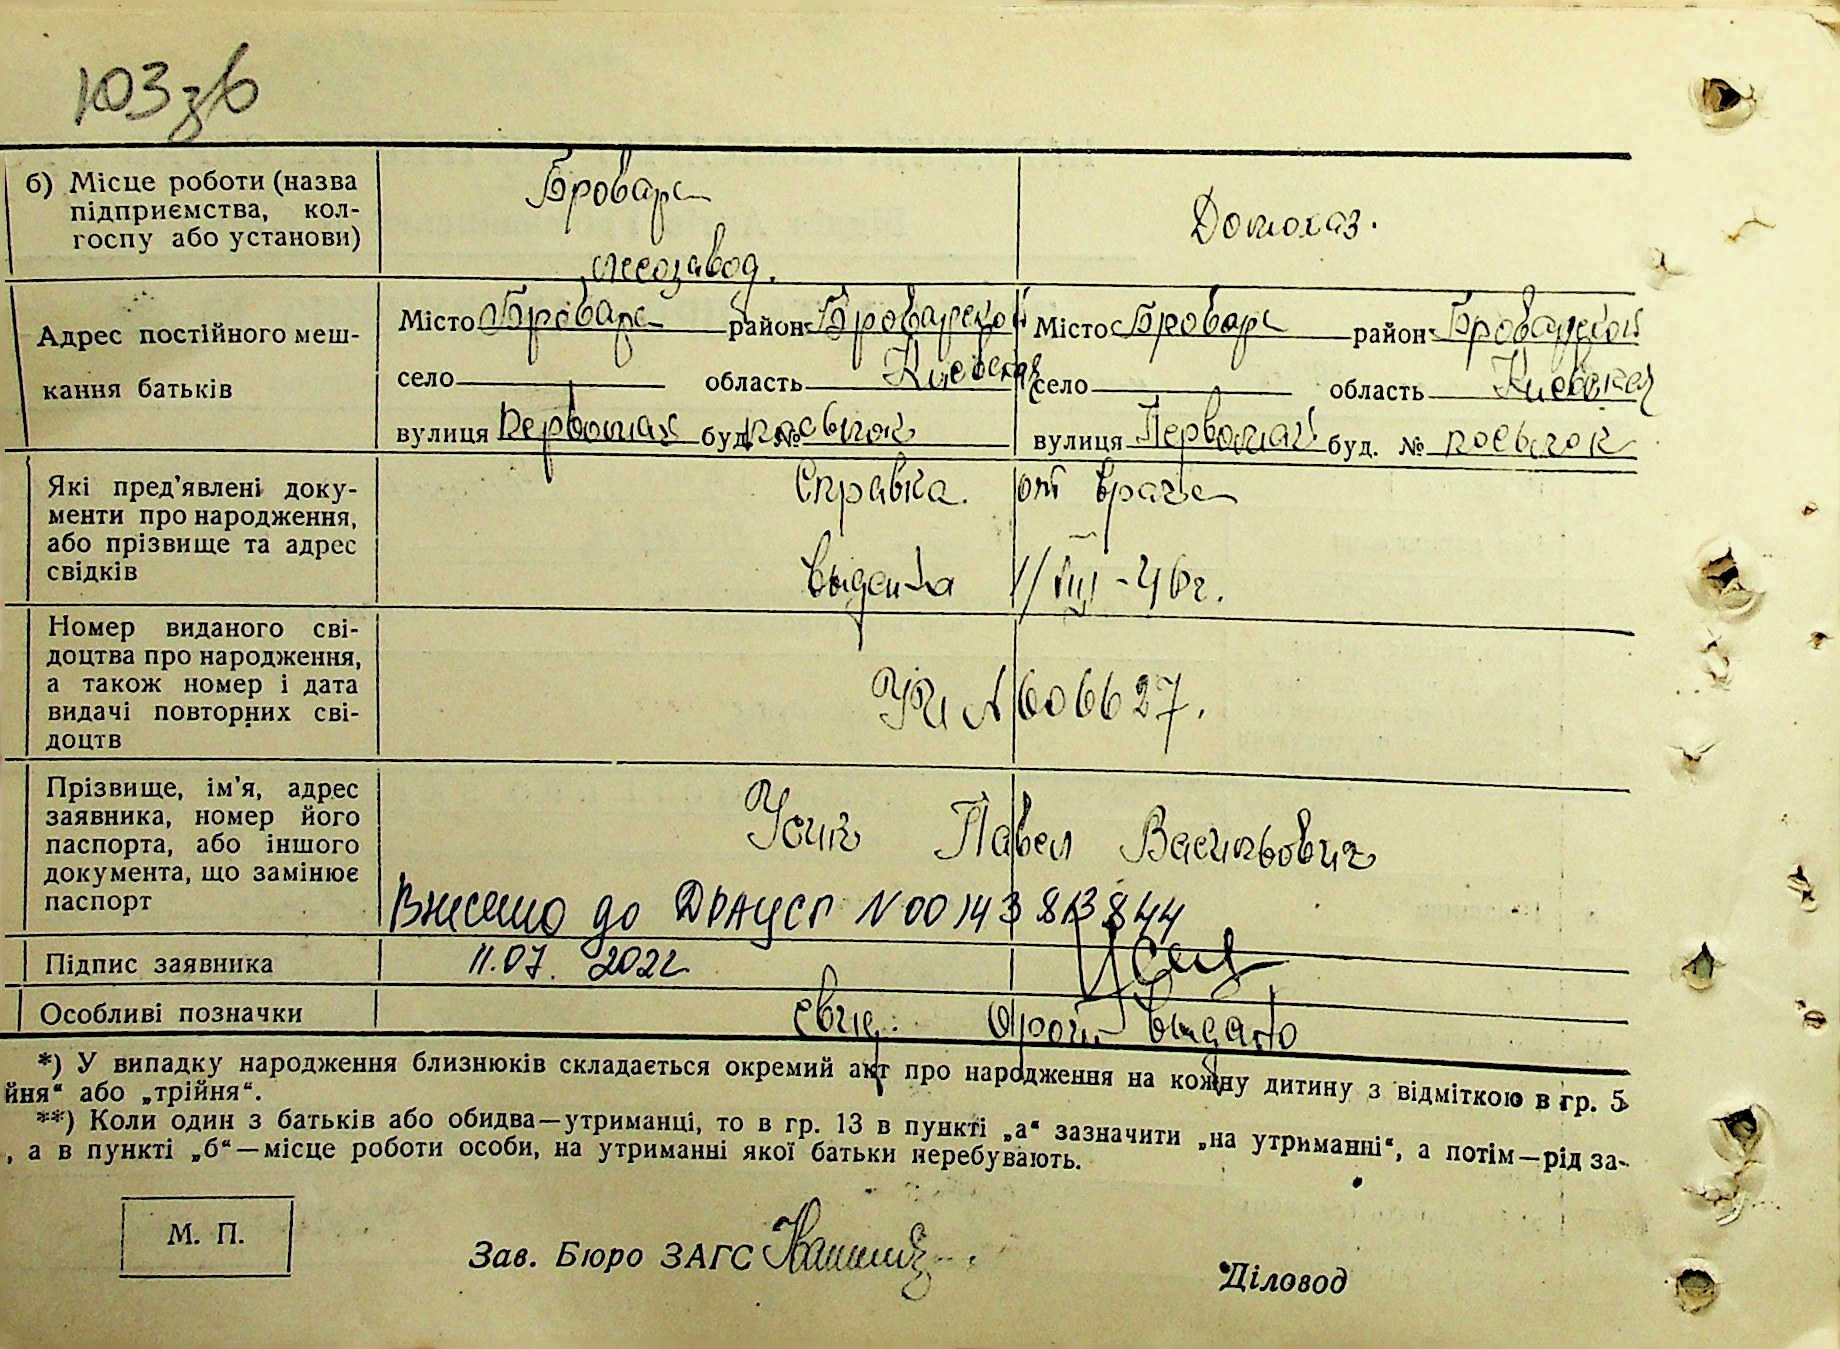 103зв
б) Місце роботи (назва
підприємства, кол-
госпу або установи)
Бровары
лесозавод.
Домохаз.
Адрес постійного меш-
кання батьків
Місто Бровары район Броварской
село область Киевская
вулиця Первомай буд. № посьлок
Місто Бровары район Броварской
село область Киевская
вулиця Первомай буд. № посьлок
Які пред'явлені доку-
менти про народження,
або прізвище та адрес
свідків
Справка от врача
выдана 1/VIII-46г.
Номер виданого сві-
доцтва про народження,
а також номер і дата
видачі повторних сві-
доцтв
N 606627.
Прізвище, ім'я, адрес
заявника, номер його
паспорта, або іншого
документа, що замінює
паспорт
Усик Павел Васильович
Внесено до ДРАЦСГ N 00143813844
Підпис заявника
11.07. 2022
Особливі позначки
выдано
*) У випадку народження близнюків складається окремий акт про народження на кожну дитину з відміткою в гр. 5
йня“ або „трійня“.
**) Коли один з батьків або обидва—утриманці, то в гр. 13 в пункті „а“ зазначити „на утриманні“, а потім—рід за-
, а в пункті „б“—місце роботи особи, на утриманні якої батьки перебувають.
М. П.
Зав. Бюро ЗАГС
Діловод